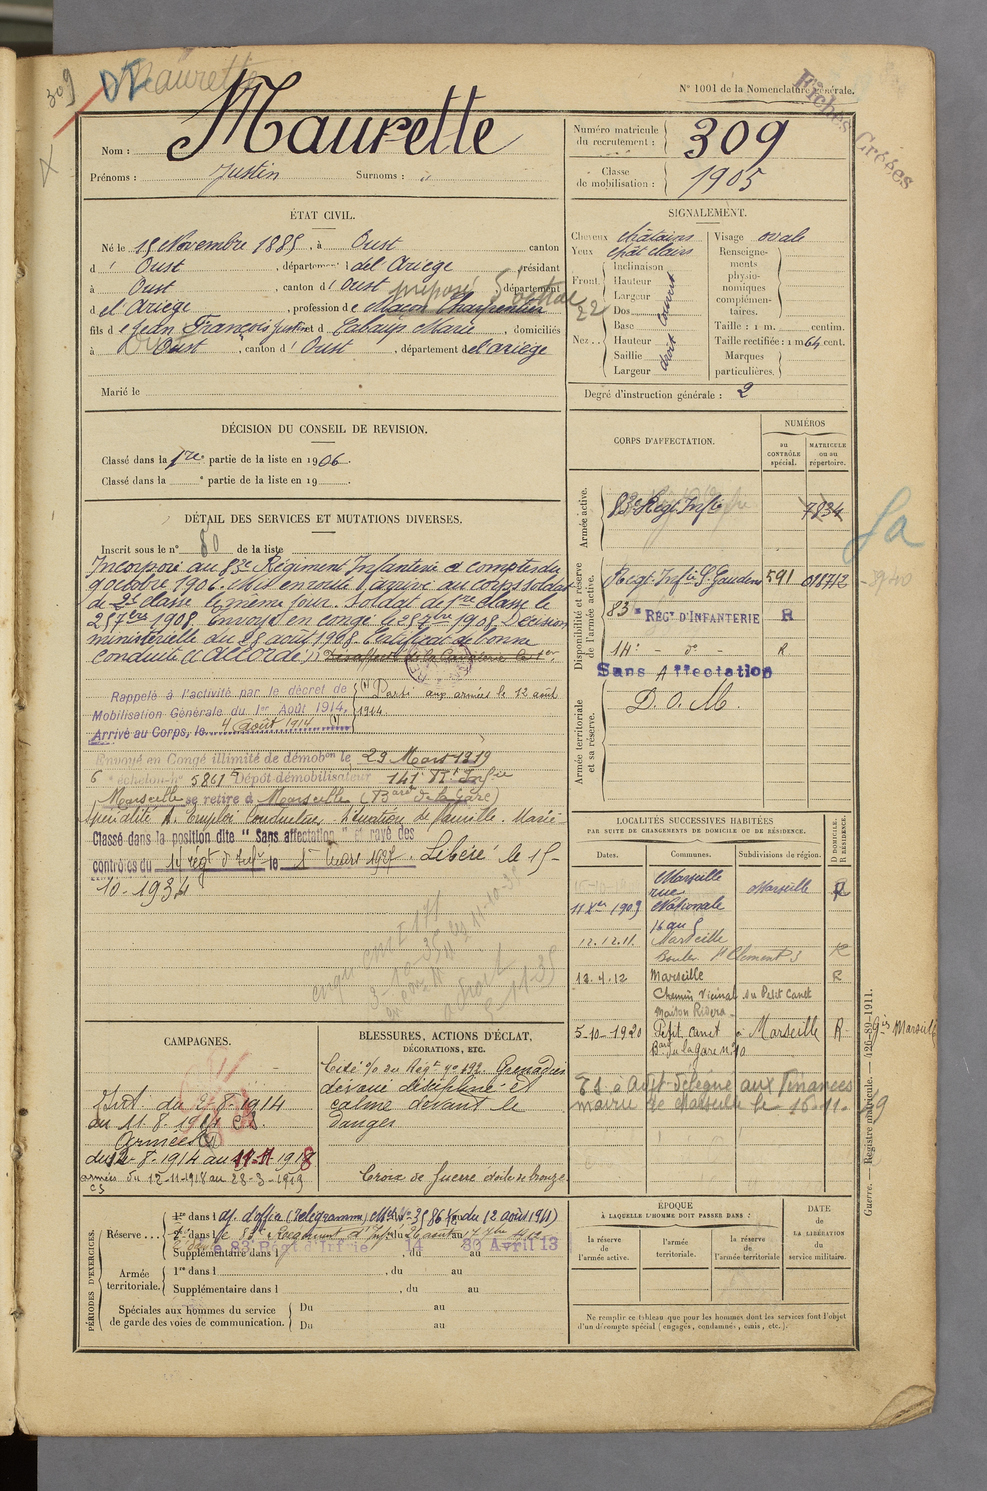 309
Maurette
N° 1001 de la Nomenclature générale.
Fiches Créées
Nom : Maurette
Prénoms : Justin Surnoms :
Numéro matricule du recrutement : 309
Classe de mobilisation : 1905
ÉTAT CIVIL.
Né le 15 Novembre 1885, à Oust canton
d' Oust, département de l'Ariège, résidant
à Oust, canton d' Oust département
d el'Ariège, profession de Maçon Charpentier
fils d e Jean François Justin et d Cabaup Marie, domiciliés
à Oust, canton d' Oust, département de l'ariège
Marié le
SIGNALEMENT.
Cheveux châtains
Yeux chât clairs
Front. Inclinaison
Hauteur
Largeur
Nez.. Dos
Base
Hauteur
Saillie
Largeur
Visage ovale
Renseignements physionomiques complémentaires.
Taille : 1 m. centim.
Taille rectifiée : 1 m 64 cent.
Marques particulières.
Degré d'instruction générale : 2
DÉCISION DU CONSEIL DE REVISION.
Classé dans la 1re partie de la liste en 1906.
Classé dans la e partie de la liste en 19
DÉTAIL DES SERVICES ET MUTATIONS DIVERSES.
Inscrit sous le n° 80 de la liste
Incorporé au 83e Régiment Infanterie à compter du
9 octobre 1906. Mis en route arrivé au corps soldat
de 2e classe le même jour. Soldat de 1re classe le
25 7bre 1908. Envoyé en congé le 25 7bre 1908 Décision
ministérielle du 25 août 1908 Certificat de bonne
conduite "Accordé"
Rappelé à l'activité par le décret de
Mobilisation Générale du 1er Août 1914.
Arrivé au Corps, le 4 août 1914 (1)
(1) Parti aux armées le 12 août
1914.
Envoyé en Congé illimité de démobon le 29 Mars 1919
6e échelon n° 5861 Dépôt démobilisateur 141e Rt Infie
Marseille se retire à Marseille (Bard de la Gare)
Spécialité A. Emploi Conducteur Situation de famille. Marié
Classé dans la position dite "Sans affectation" et rayé des
contrôles du 14 regt d'Infie le 1er Mars 1927. Libéré le 15-
10-1934
CORPS D'AFFECTATION.
NUMÉROS
au CONTRÔLE spécial.
MATRICULE ou au répertoire.
Armée active.
83e Régt Infie 7834
Disponibilité et réserve de l'armée active.
Régt Infie St Gaudens 591 018742
83e RÉGt D'INFANTERIE R
14e - do - R
Sans Affectation
Armée territoriale et sa réserve.
D. O. M.
LOCALITÉS SUCCESSIVES HABITÉES
PAR SUITE DE CHANGEMENTS DE DOMICILE OU DE RÉSIDENCE.
Dates. Communes. Subdivisions de région. D DOMICILE. R RÉSIDENCE.
Marseille
rue Marseille R
11 Xer 1909 Nationale
12.12.11. Marseille
Boulev. St Clement 5 R
13.4.12 Marseille R
Chemin Vicinal du Petit Canet
Maison Rivera
5-10-1920 Petit canet à Marseille R.
Bard de la gare n° 10
CAMPAGNES.
Int. du 2-8-1914
au 11.8.1914 CS.
Armées
du 12-8-1914 au 11-11-1918
armées du 12-11-1918 au 28-3-1919
CS
BLESSURES, ACTIONS D'ÉCLAT,
DÉCORATIONS, ETC.
Cité à/o du Régt n° 192. Grenadier
dévoué discipliné et
calme devant le
danger
Croix de Guerre étoile de bronze.
PÉRIODES D'EXERCICES.
Réserve...
1re dans l
2e dans l
Supplémentaire dans l e 83e Régt d'Infie 14 au 30 Avril 13
Armée territoriale.
1re dans l, du au
Supplémentaire dans l, du au
Spéciales aux hommes du service de garde des voies de communication.
Du au
Du au
ÉPOQUE
À LAQUELLE L'HOMME DOIT PASSER DANS :
la réserve de l'armée active.
l'armée territoriale.
la réserve de l'armée territoriale
DATE de LA LIBÉRATION du service militaire.
Ne remplir ce tableau que pour les hommes dont les services font l'objet
d'un décompte spécial (engagés, condamnés, omis, etc.).
Guerre. — Registre matricule. — 426-89-1911.